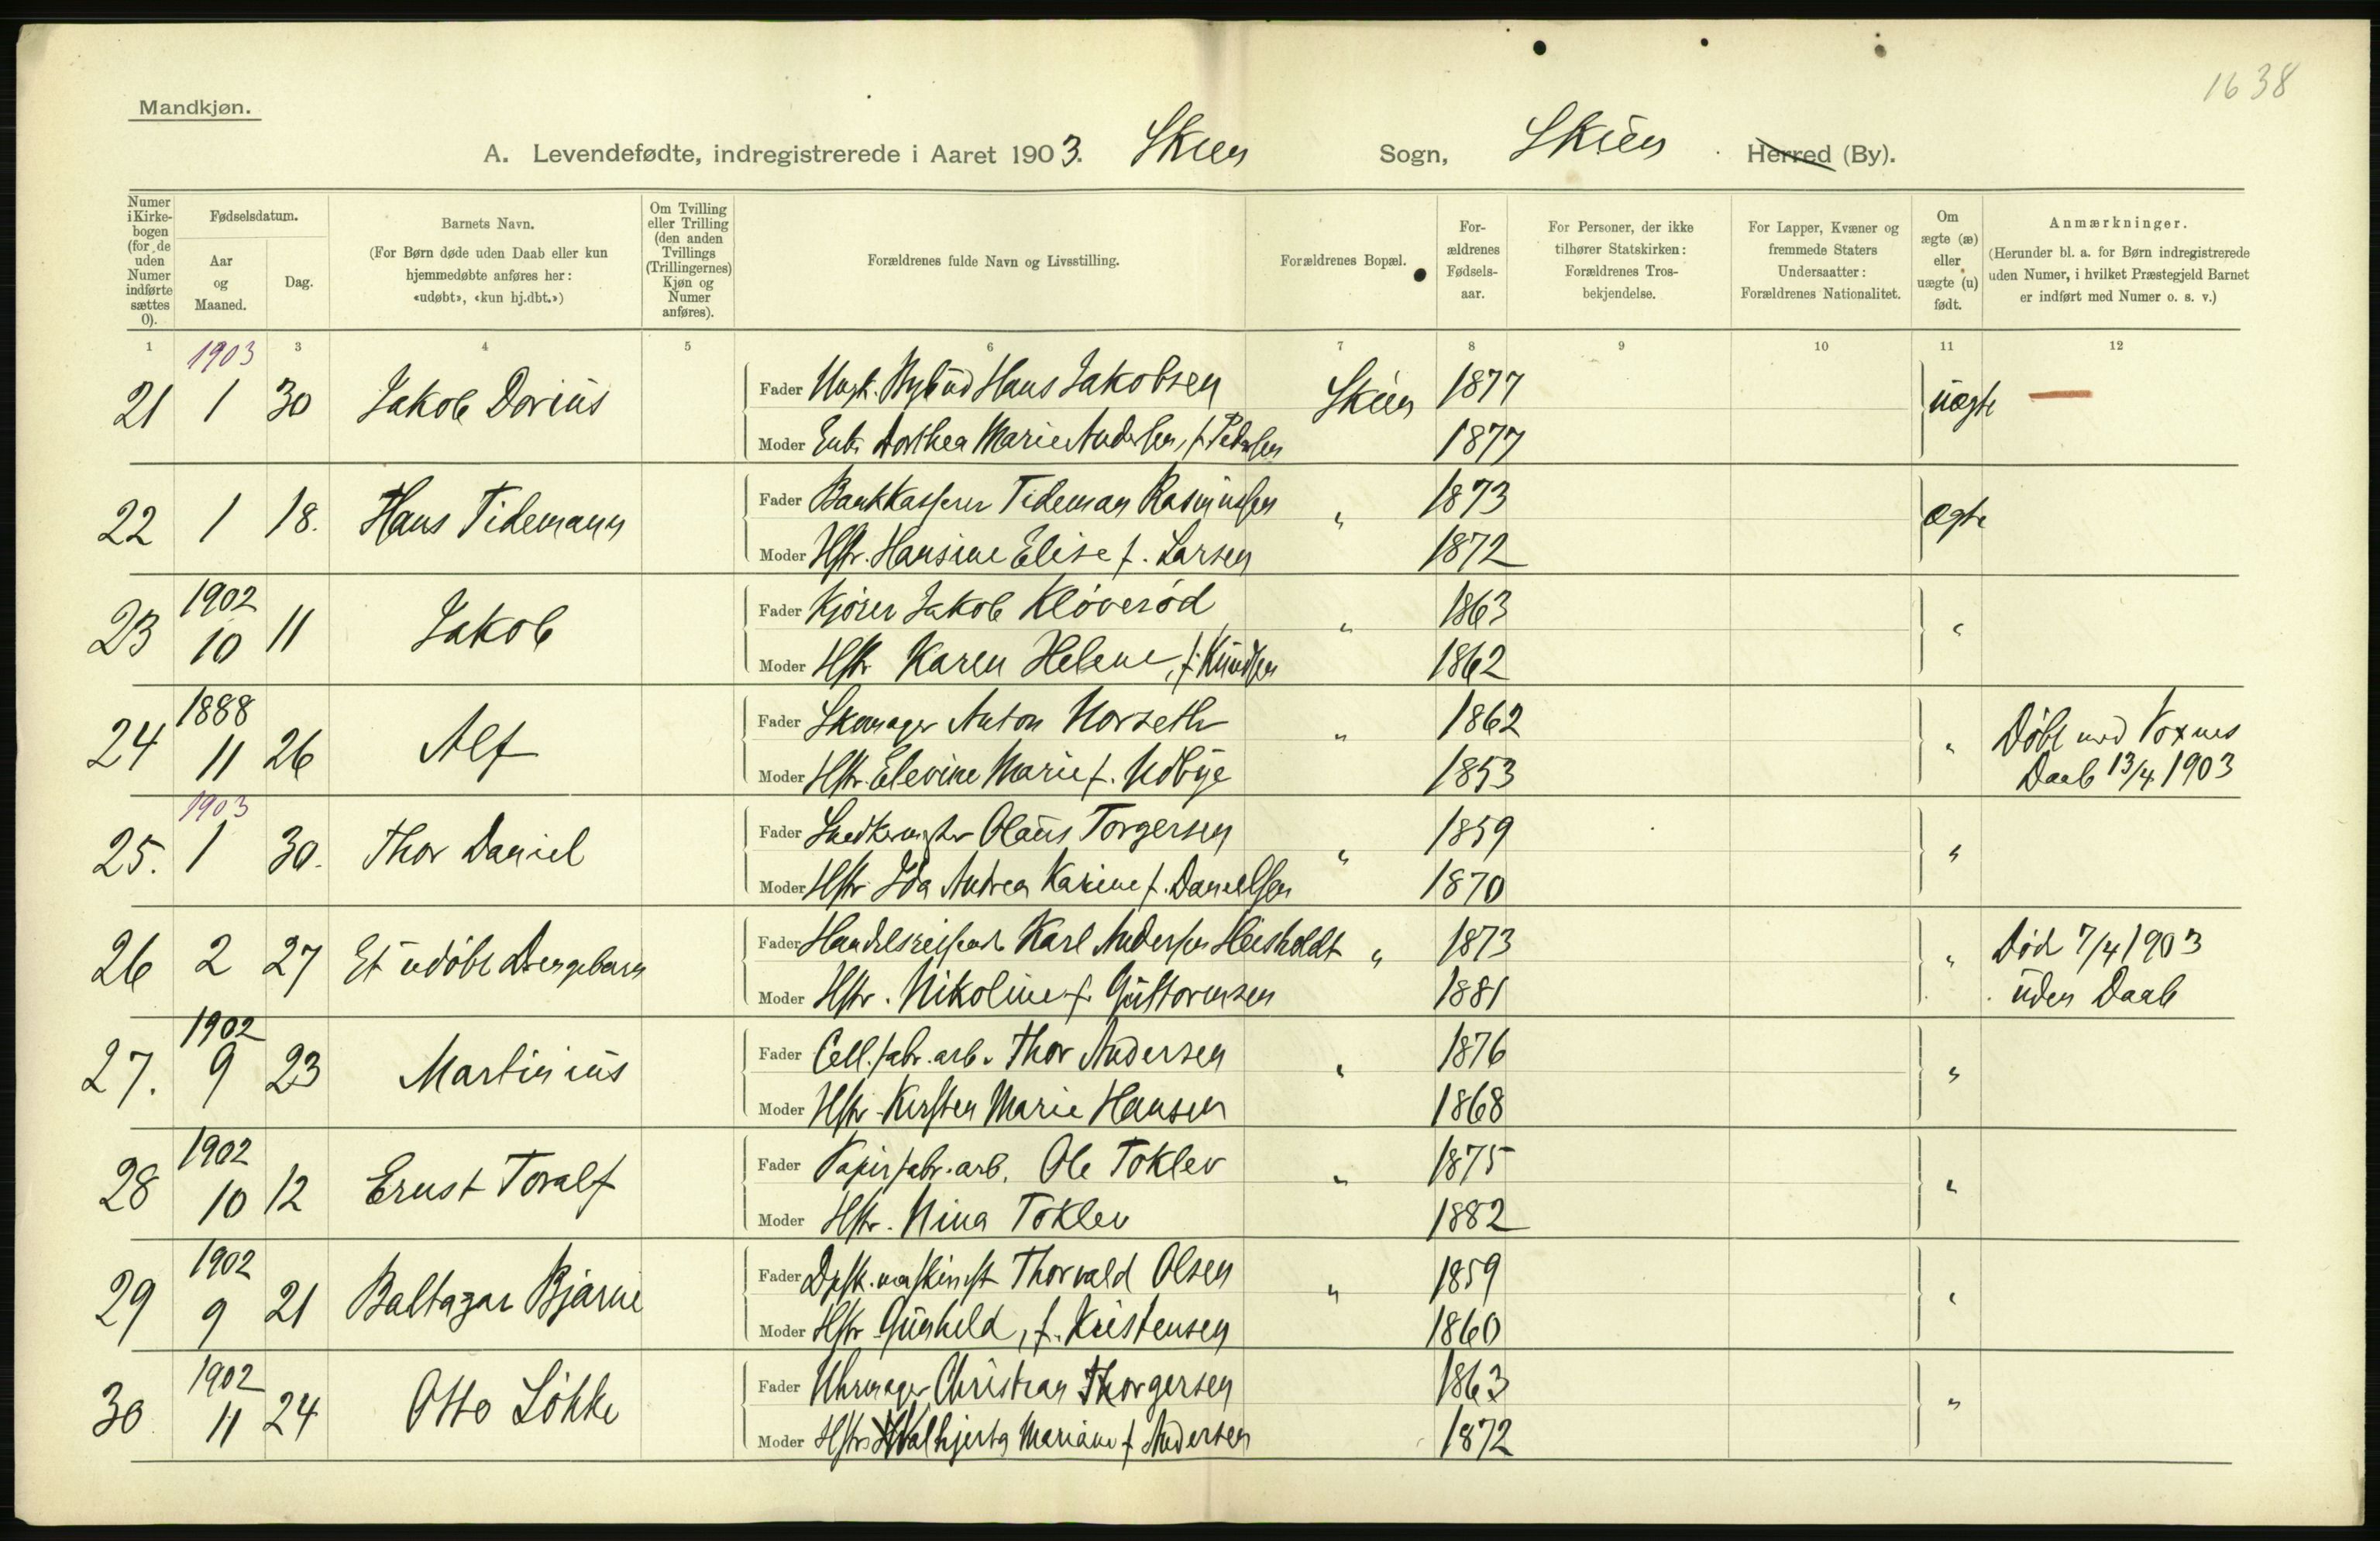 1638
Mandkjøn.
A. Levendefødte, indregistrerede i Aaret 1903. Skien Sogn, Skien Herred (By).
Numer i Kirkebogen (for de uden Numer indførte sættes 0).
Fødselsdatum.
Aar og Maaned.
Dag.
Barnets Navn.
(For Børn døde uden Daab eller kun hjemmedøbte anføres her: «udøbt», «kun hj.dbt.»)
Om Tvilling eller Trilling (den anden Tvillings (Trillingernes) Kjøn og Numer anføres).
Forældrenes fulde Navn og Livsstilling.
Forældrenes Bopæl.
Forældrenes Fødselsaar.
For Personer, der ikke tilhører Statskirken: Forældrenes Trosbekjendelse.
For Lapper, Kvæner og fremmede Staters Undersaatter: Forældrenes Nationalitet.
Om ægte (æ) eller uægte (u) født.
Anmærkninger.
(Herunder bl. a. for Børn indregistrerede uden Numer, i hvilket Præstegjeld Barnet er indført med Numer o. s. v.)
1 3 4 5 6 7 8 9 10 11 12
1903
21 1 30 Jakob Dorius Fader Ungk. Bybud Hans Jakobsen Skien 1877 uægte —
Moder Enke Dorthea Marie Andersen, f. Pedersen 1877
22 1 18. Hans Tidemann Fader Bankkasserer Tideman Rasmussen " 1873 ægte
Moder Hstr. Hansine Elise f. Larsen 1872
1902
23 10 11 Jakob Fader Kjører Jakob Kløverød " 1863 "
Moder Hstr Karen Helene, f. Knudsen 1862
1888
24 11 26 Alf Fader Skomager Anton Norseth " 1862 " Døbt med Voxnes
Moder Hstr. Elevine Marie f. Udbye 1853 Daab 13/4 1903
1903
25. 1 30. Thor Daniel Fader Snedkermester Olaus Torgersen " 1859 "
Moder Hstr Ida Andrea Karine f. Danielsen 1870
26 2 27 Et udøbt Drengebarn Fader Handelsreisende Karl Andersen Heisholdt " 1873 " Død 7/4 1903
Moder Hstr. Nikoline f. Guttormsen 1881 uden Daab
1902
27. 9 23 Martinius Fader Cell.fabr.arb. Thor Andersen " 1876 "
Moder Hstr Kirsten Marie Hansen 1868
1902
28 10 12 Ernst Toralf Fader Papirfabr.arb. Ole Toklev " 1875 "
Moder Hstr. Nina Toklev 1882
1902
29 9 21 Baltazar Bjarne Fader Dpsk.maskinist Thorvald Olsen " 1859 "
Moder Hstr Gunhild, f. Kristensen 1860
1902
30 11 24 Otto Løkke Fader Uhrmager Christian Thorgersen 1863 "
Moder Hstr Valhjerta Mariane f Andersen 1872